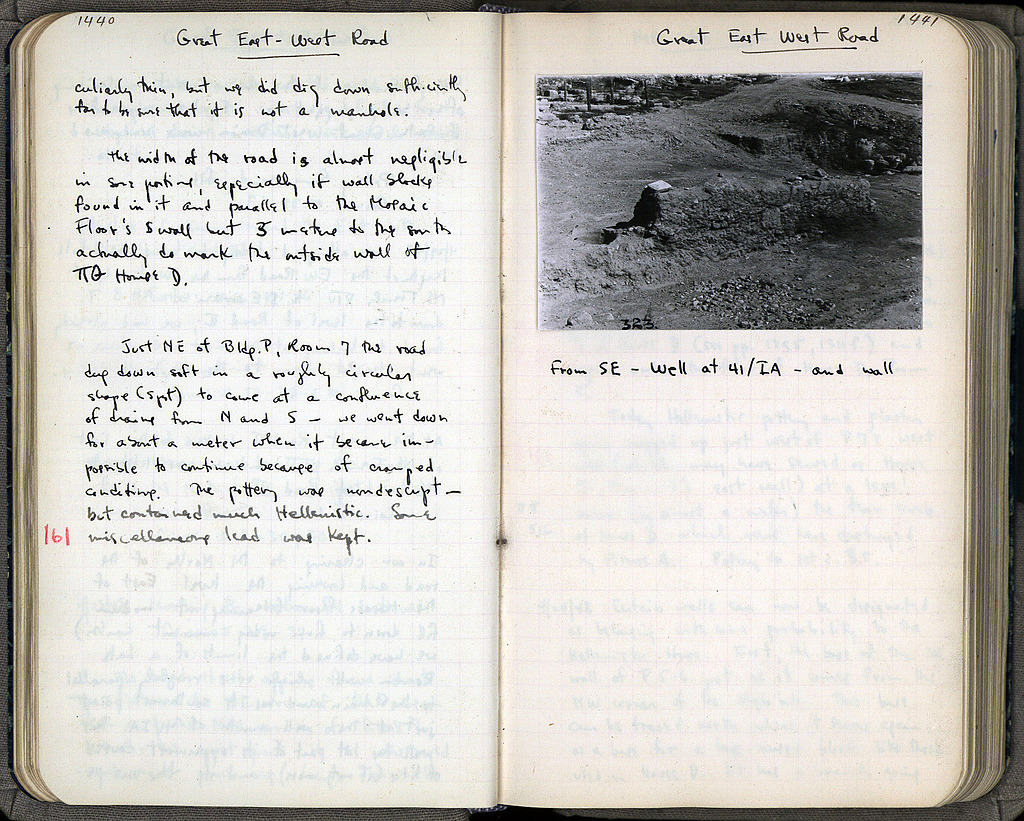 1440
Great East-West Road
culiarly thin, but we did dig down sufficiently
far to be sure that it is not a manhole.
The width of the road is almost negligible
in some portions, especially if wall blocks
found in it and parallel to the Mosaic
Floor's S wall but 3 metres to the south
actually do mark the outside wall of
House D.
Just NE of Bldg. P, Room 7 the road
dug down soft in a roughly circular
shape (spot) to come at a confluence
of drains from N and S — we went down
for about a meter when it became im-
possible to continue because of cramped
conditions. The pottery was nondescript —
but contained much Hellenistic. Some
161 miscellaneous lead was kept.
1441
Great East West Road
323
From SE - Well at 41/IA - and wall